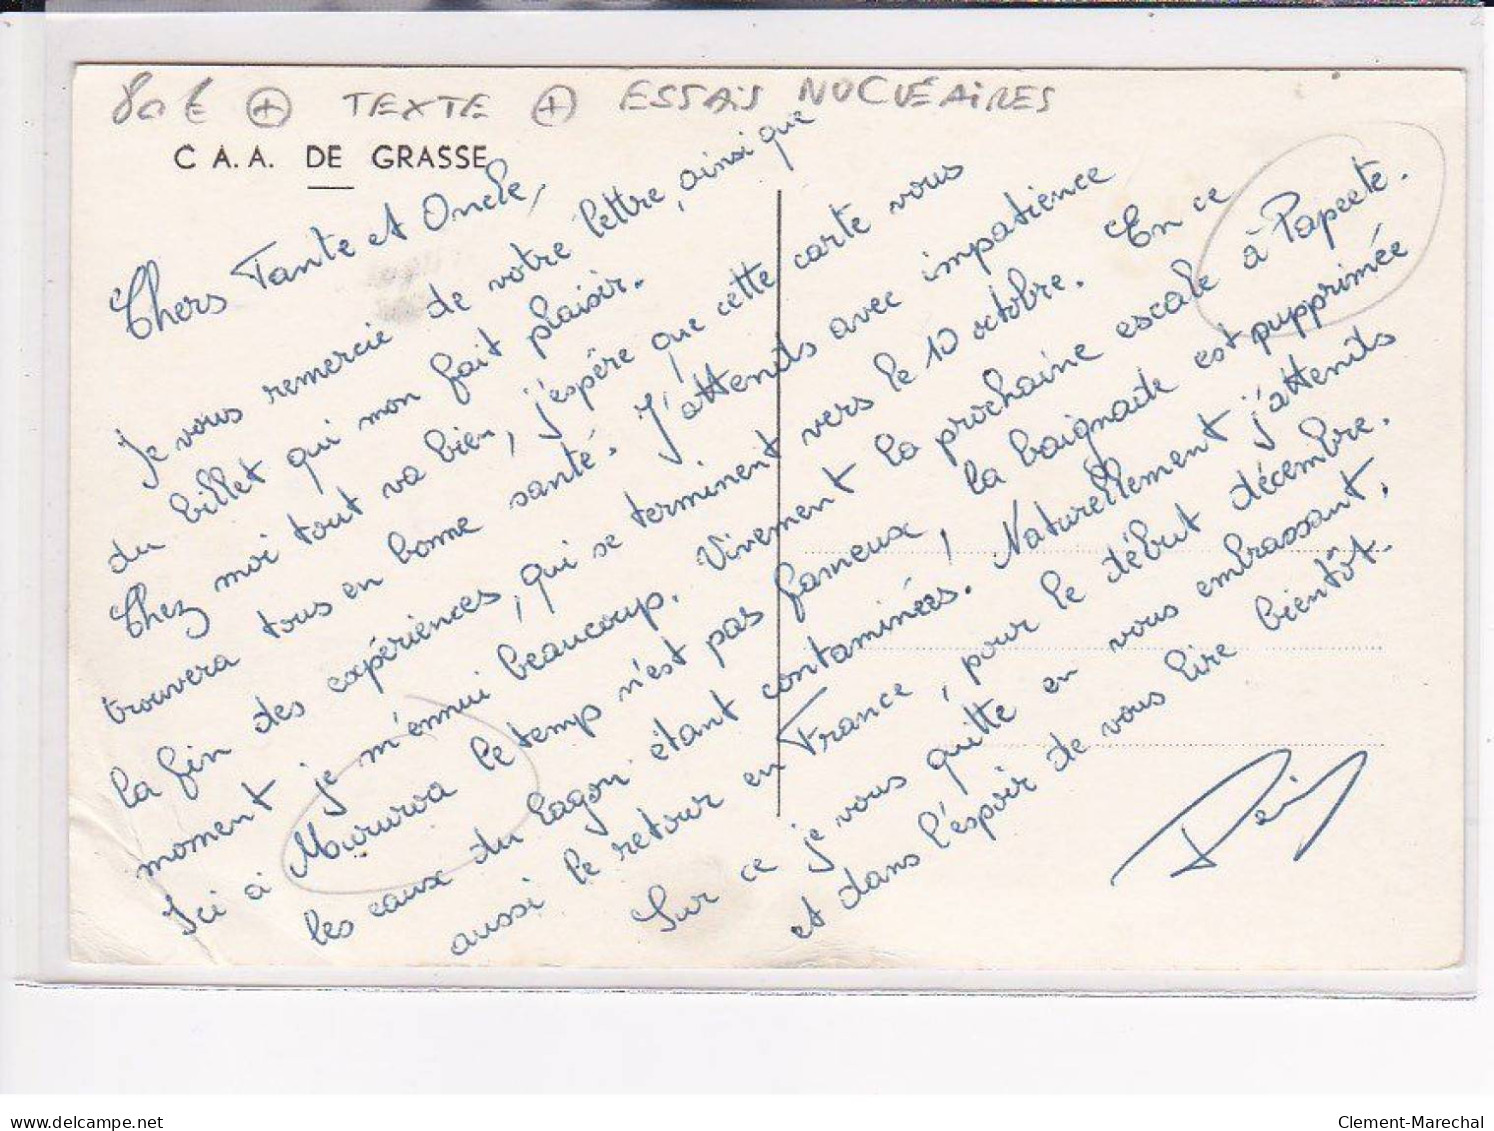 80 € + TEXTE + ESSAIS NUCLÉAIRES
C A.A. DE GRASSE
Chers Tante et Oncle,
Je vous remercie de votre lettre, ainsi que
du billet qui mon fait plaisir.
Chez moi tout va bien, j'espère que cette carte vous
trouvera tous en bonne santé. J'attends avec impatience
la fin des expériences, qui se terminent vers le 10 octobre. En ce
moment je m'ennui beaucoup. Vivement la prochaine escale à Papeete.
Ici à Mururoa le temp n'est pas fameux, la baignade est supprimée
les eaux du lagon étant contaminées. Naturellement j'attends
aussi le retour en France, pour le début décembre.
Sur ce je vous quitte en vous embrassant.
et dans l'espoir de vous lire bientôt.
delcampe.net
Clement-Marechal